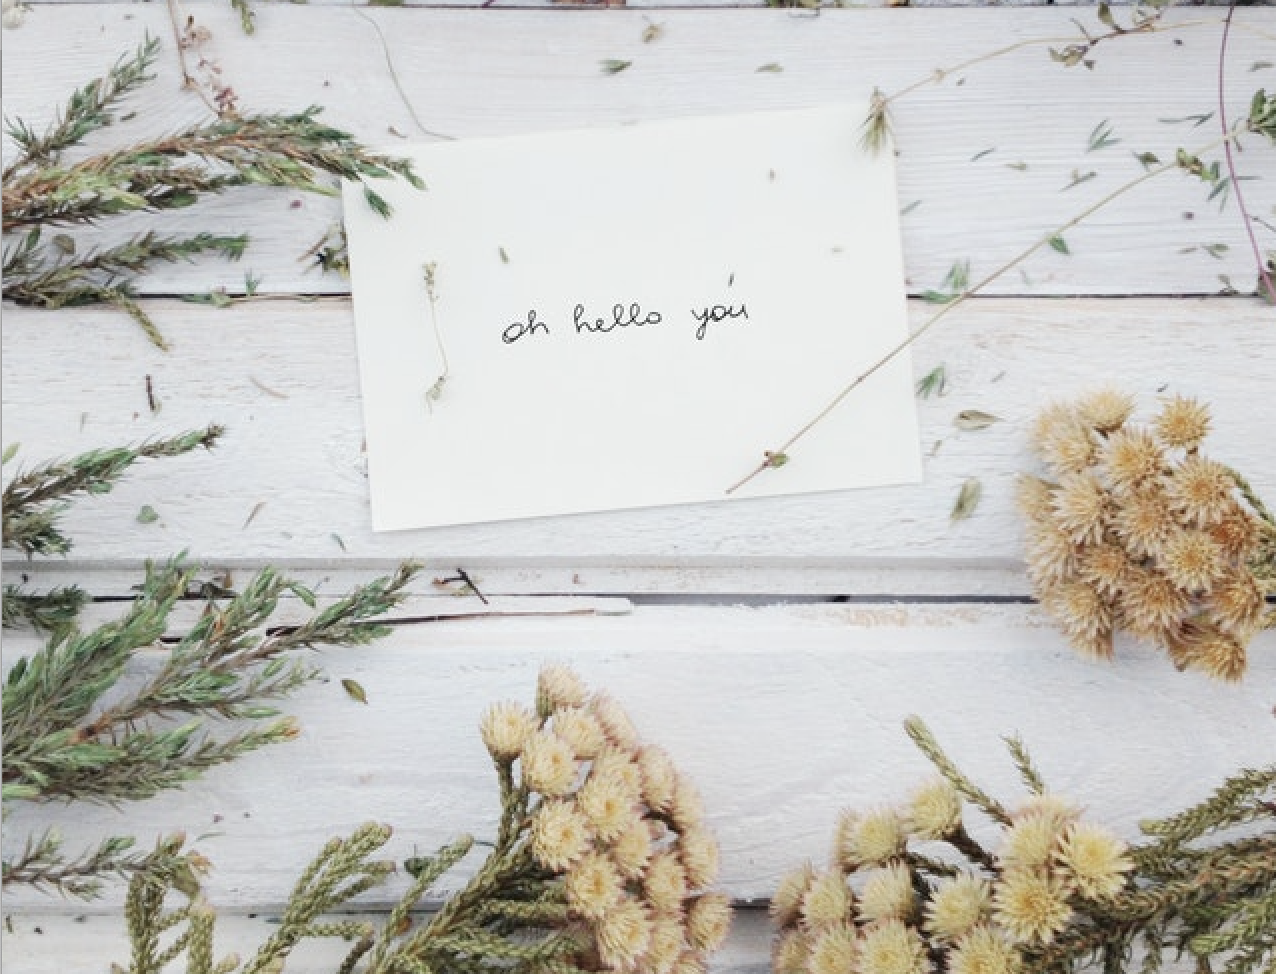 oh hello you